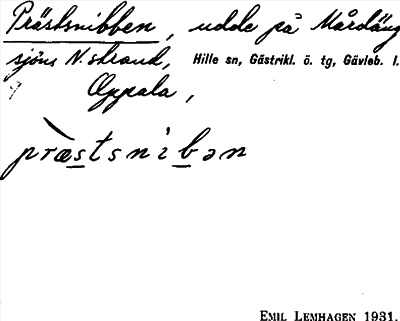 Prästsnibben, udde på Mårdäng
sjöns N. strand, Hille sn, Gästrikl. ö. tg, Gävleb. l.
Oppala,
præstsnibən
EMIL LEMHAGEN 1931.